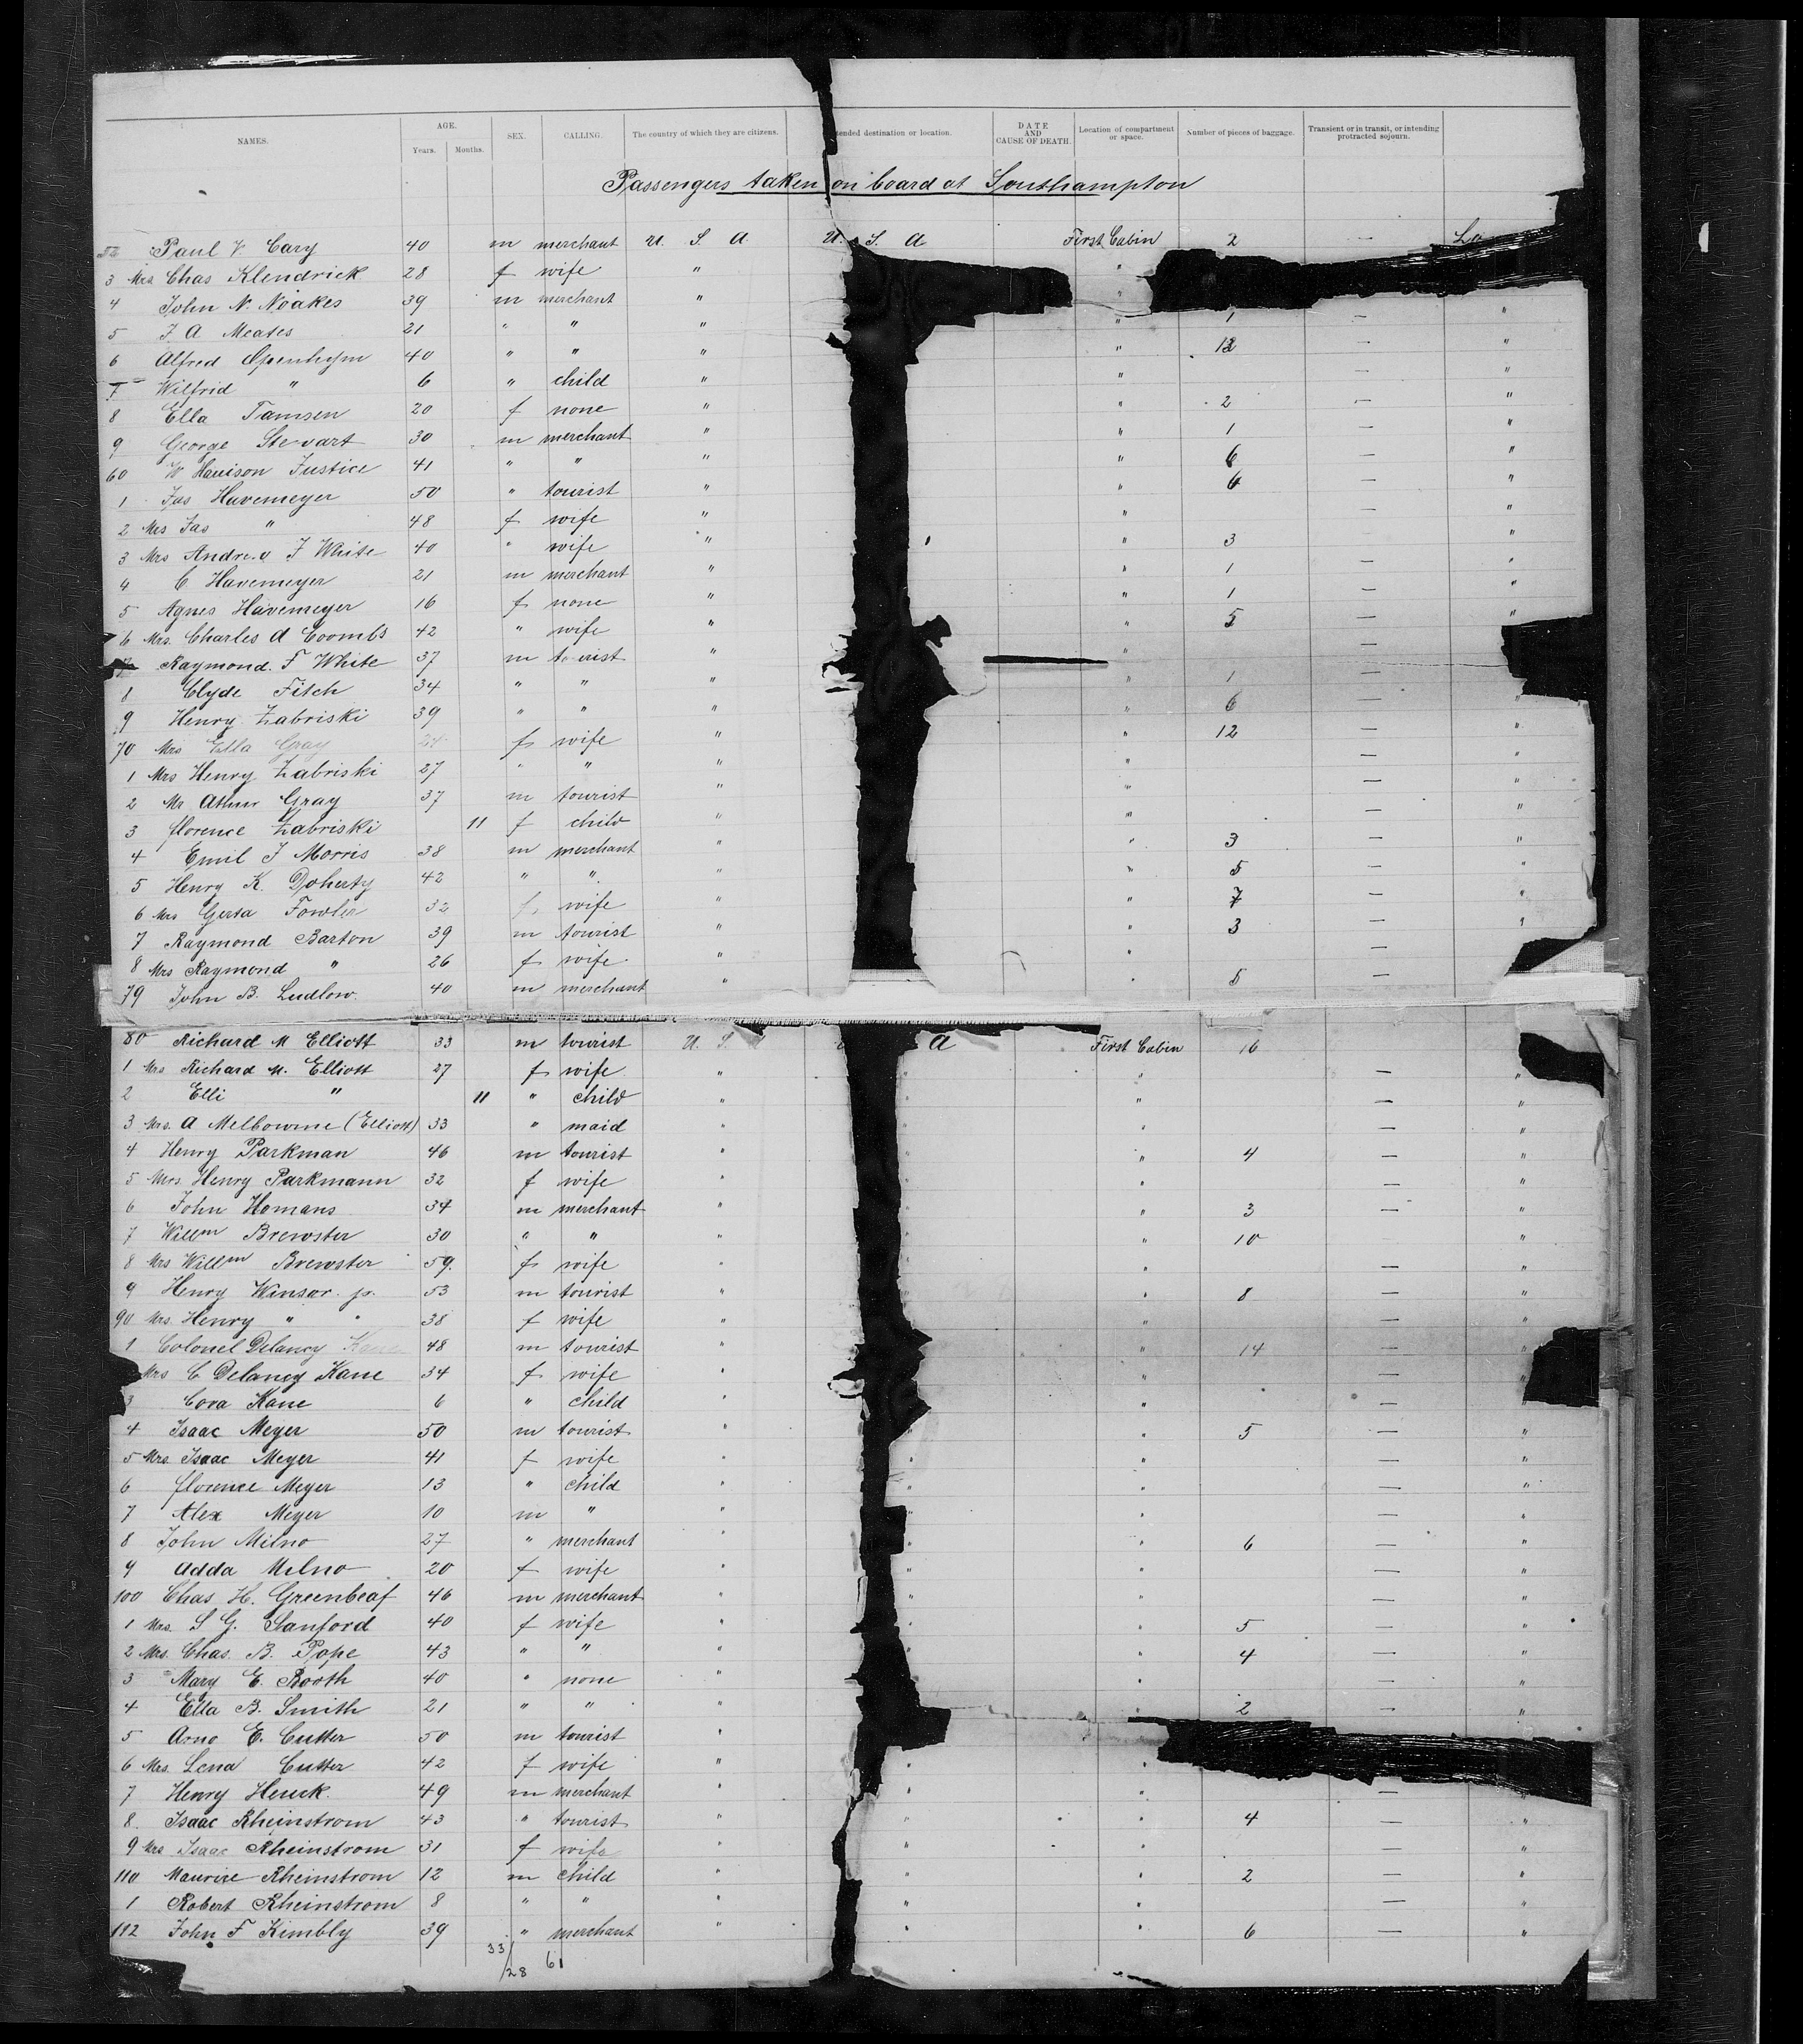 NAMES. AGE. Years. Months. SEX. CALLING. The country of which they are citizens. tended destination or location. DATE AND CAUSE OF DEATH. Location of compartment or space. Number of pieces of baggage. Transient or in transit, or intending protracted sojourn.
Passengers taken on board at Southampton
52 Paul V. Cary 40 m merchant U. S. A. U. S. A First Cabin 2 —
3 Mrs Chas Klendrick 28 f wife " "
4 John N. Noakes 39 m merchant " "
5 J. A Meates 21 " " " " 1 — "
6 Alfred Openhym 40 " " " " 12 — "
7 Wilfrid " 6 " child " " — "
8 Ella Tamsen 20 f none " " 2 — "
9 George Stewart 30 m merchant " " 1 — "
60 W Harrison Justice 41 " " " " 6 — "
1 Jas Havemeyer 50 " tourist " " 6 — "
2 Mrs Jas " 48 f wife " " — "
3 Mrs Andrew J White 40 " wife " " 3 "
4 C Havemeyer 21 m merchant " " 1 — "
5 Agnes Havemeyer 16 f none " " 1 — "
6 Mrs. Charles A Coombs 42 " wife " " 5 — "
7 Raymond. F White 37 m tourist " " —
8 Clyde Fitch 34 " " " " 1 —
9 Henry Zabriski 39 " " " " 6 — "
70 Mrs Ella Gray f wife " " 12 — "
1 Mrs Henry Zabriski 27 " " " " — "
2 Mr Athur Gray 37 m tourist " " — "
3 florence Zabriski 11 f child " " — "
4 Emil J Morris 38 m merchant " " 3 — "
5 Henry K. Doherty 42 " " " " 5 — "
6 Mrs Gerta Fowler 32 f. wife " " 7 — "
7 Raymond Barton 39 m tourist " " 3 — "
8 Mrs Raymond " 26 f wife " " —
79 John B. Ludlow. 40 m merchant " " 5 —
80 Richard M Elliott 33 m tourist U. S. A First Cabin 16
1 Mrs Richard M. Elliott 27 f wife " " " — "
2 Elli " 11 " child " " " — "
3 Mrs. A Melbourne (Elliott) 33 " maid " " " — "
4 Henry Parkman 46 m tourist " " " 4 — "
5 Mrs. Henry Parkmann 32 f wife " " — "
6 John Homans 34 m merchant " " " 3 — "
7 Willm Brewster 30 " " " " " 10 — "
8 Mrs Willm Brewster 59. f wife " " " — "
9 Henry Winsor jr. 53 m tourist " " 8 — "
90 Mrs. Henry " " 38 f wife " " — "
1 Colonel Delancy Kane 48 m tourist " " 14 — "
Mrs C Delaney Kane 34 f wife " " — "
3 Cora Kane 6 " child " " — "
4 Isaac Meyer 50 m tourist " " " 5 — "
5 Mrs. Isaac Meyer 41 f wife " " " — "
6 florence Meyer 13 " child " " " — "
7 Alex Meyer 10 m " " " " — "
8 John Milno 27 " merchant " " " 6 — "
9 Adda Milno 20 f wife " " " — "
100 Chas H. Greenbeaf 46 m merchant " " " — "
1 Mrs. S G. Sanford 40 f wife " " " 5 — "
2 Mrs. Chas. B. Pope 43 " " " " " 4 — "
3 Mary E. Booth 40 " none " " " — "
4 Ella B. Smith 21 " " " " 2 — "
5 Arno E. Cutter 50 m tourist " "
6 Mrs. Lena Cutter 42 f wife " " "
7 Henry Heuck. 49 m merchant " " " —
8. Isaac Rheinstrom 43 " tourist " " " 4 — "
9 Mrs Isaac Rheinstrom 31 f wife " " " — "
110 Maurice Rheinstrom 12 m child " " " 2 — "
1 Robert Rheinstrom 8 " " " " " — "
112 John F Kimbly 39 " merchant " " " 6 — "
33/28 61